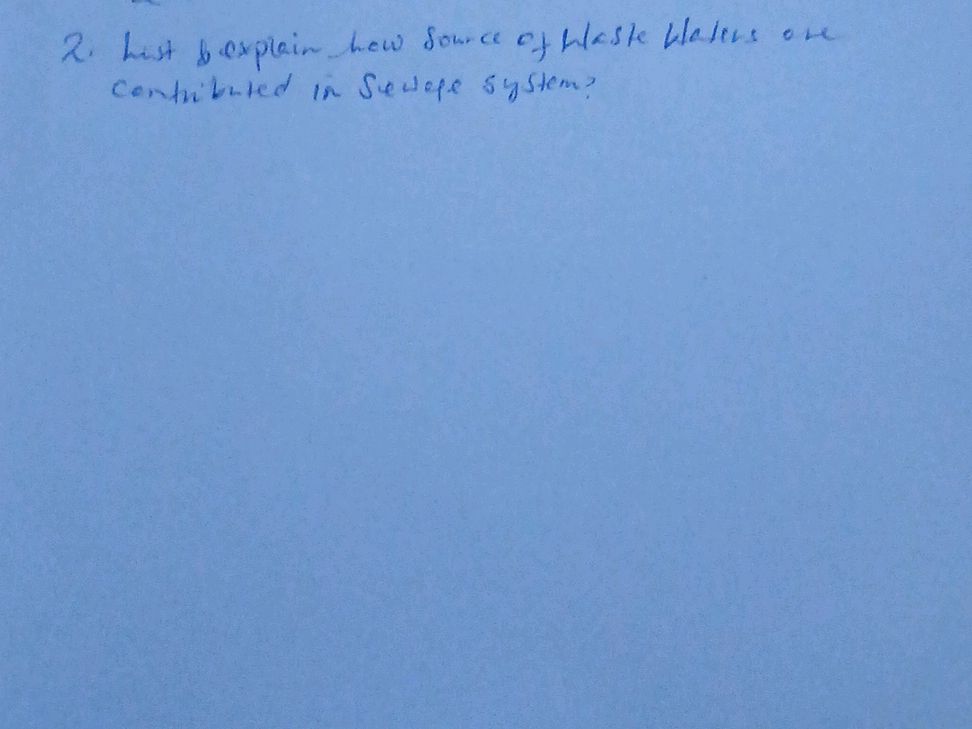 2. List & explain how Source of Waste Waters are
contributed in Sewage system?